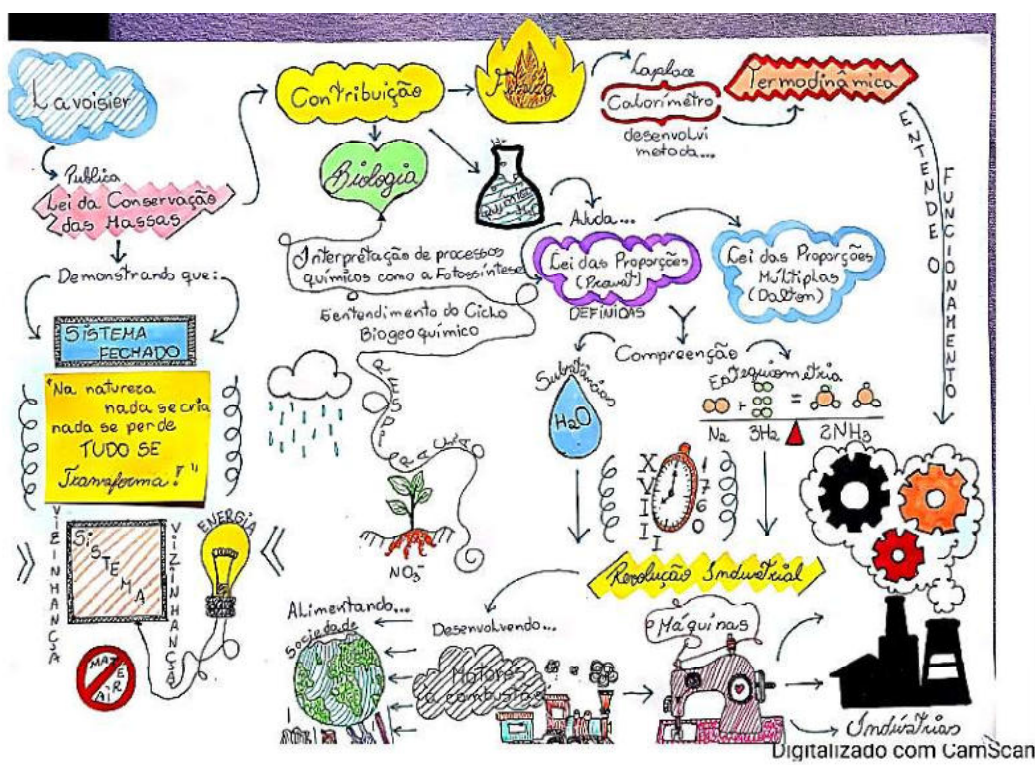 Lavoisier
Publica
Lei da Conservação
das Massas
Demonstrando que:
SISTEMA
FECHADO
"Na natureza
nada se cria
nada se perde
TUDO SE
Transforma!"
VIZINHANÇA
SISTEMA
VIZINHANÇA
ENERGIA
MATÉRIA
Contribuição
Física
Laplace
Calorímetro
desenvolvi
metoda...
Termodinâmica
ENTENDE O
FUNCIONAMENTO
Biologia
Química
Interpretação de processos
químicos como a Fotossíntese
Eentendimento do Ciclo
Biogeoquímico
RESPI
RAÇÃO
NO₃⁻
Ajuda...
Lei das Proporções
(Proust)
DEFINIDAS
Lei das Proporções
Múltiplas
(Dalton)
Compreenção
Substâncias
H₂O
Estequiometria
+ =
N₂ 3H₂ 2NH₃
XVIII
1760
Revolução Industrial
Desenvolvendo...
Alimentando...
Sociedade
Motores
a combustão
Máquinas
Indústrias
Digitalizado com CamScan